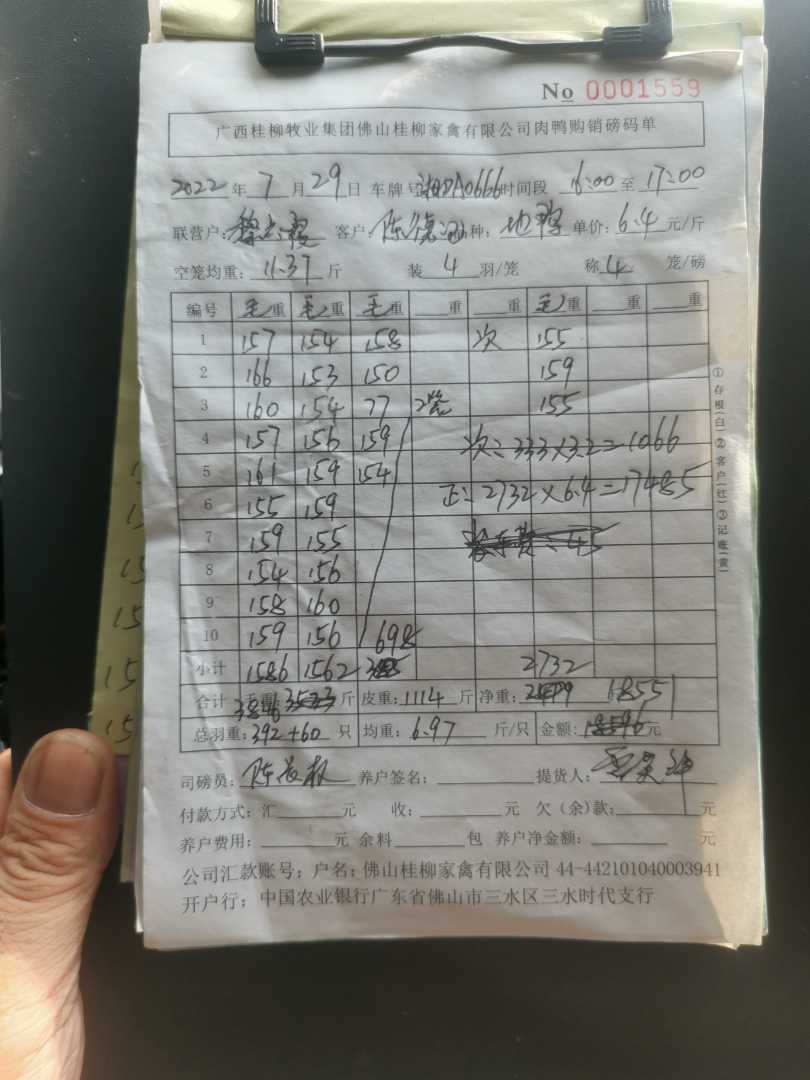 No 0001559
广西桂柳牧业集团佛山桂柳家禽有限公司肉鸭购销磅码单
2022年7月29日 车牌号 DA0666 时间段 16:00至17:00
联营户: 客户: 陈 种: 地鸭 单价: 6.4元/斤
空笼均重: 11.37斤 装4羽/笼 称4笼/磅
编号 毛重 毛重 毛重 重 重 毛重 重 重
1 157 154 158 次 155
2 166 153 150 159
3 160 154 77 2笼 155
4 157 156 159 次:333×3.2=1066
5 161 159 154 正:2732×6.4=17485
6 155 159
7 159 155
8 154 156
9 158 160
10 159 156 698
小计 1586 1562 2732
合计 毛重: 3846斤 皮重: 1114斤 净重: 18551
总羽重: 392+60只 均重: 6.97斤/只 金额: 元
司磅员: 陈 养户签名: 提货人:
付款方式:汇 元 收: 元 欠(余)款: 元
养户费用: 元 余料 包 养户净金额: 元
公司汇款账号:户名:佛山桂柳家禽有限公司 44-442101040003941
开户行:中国农业银行广东省佛山市三水区三水时代支行
①存根(白)②客户(红)③记账(黄)